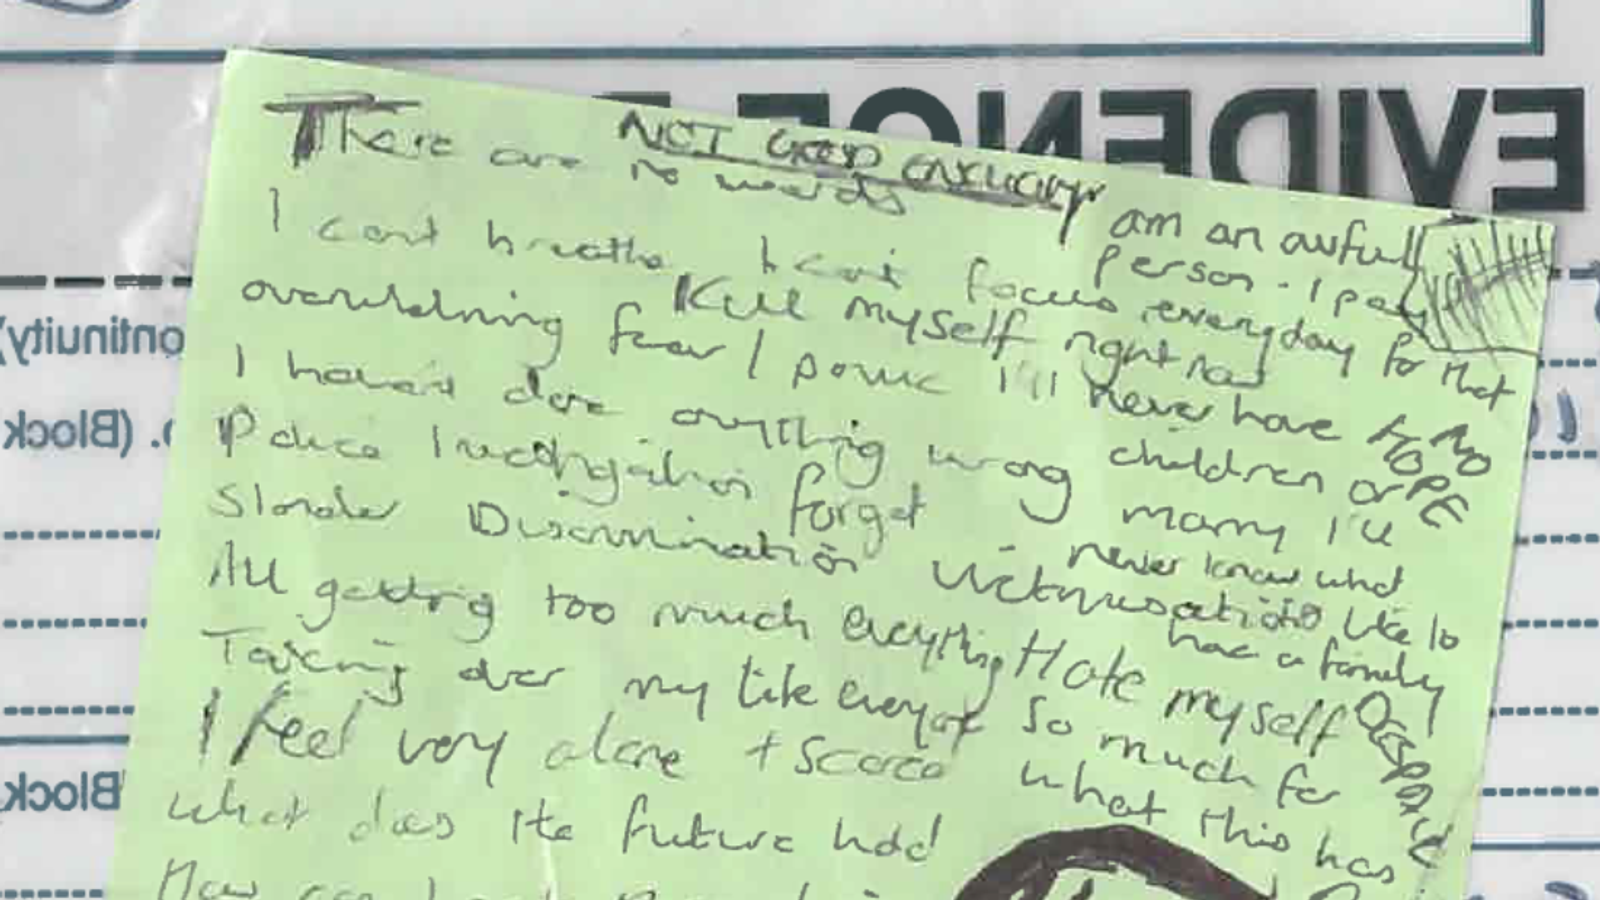 NOT GOOD ENOUGH
There are no words
I am an awful person. I pay
I cant breathe I cant focus everyday for that
Kill myself right now
overwhelming fear / panic I'll never have
NO HOPE
I haven't done anything wrong children or
Police Investigation forget marry I'll
never know what
Slander Discrimination Victimisation like to
have a family
All getting too much everything Hate myself
DESPAIR
Taking over my life everyday so much for
I feel very alone + scared what this has
what does the future hold
How can I
EVIDENCE
ontinuity)
o. (Block
Block